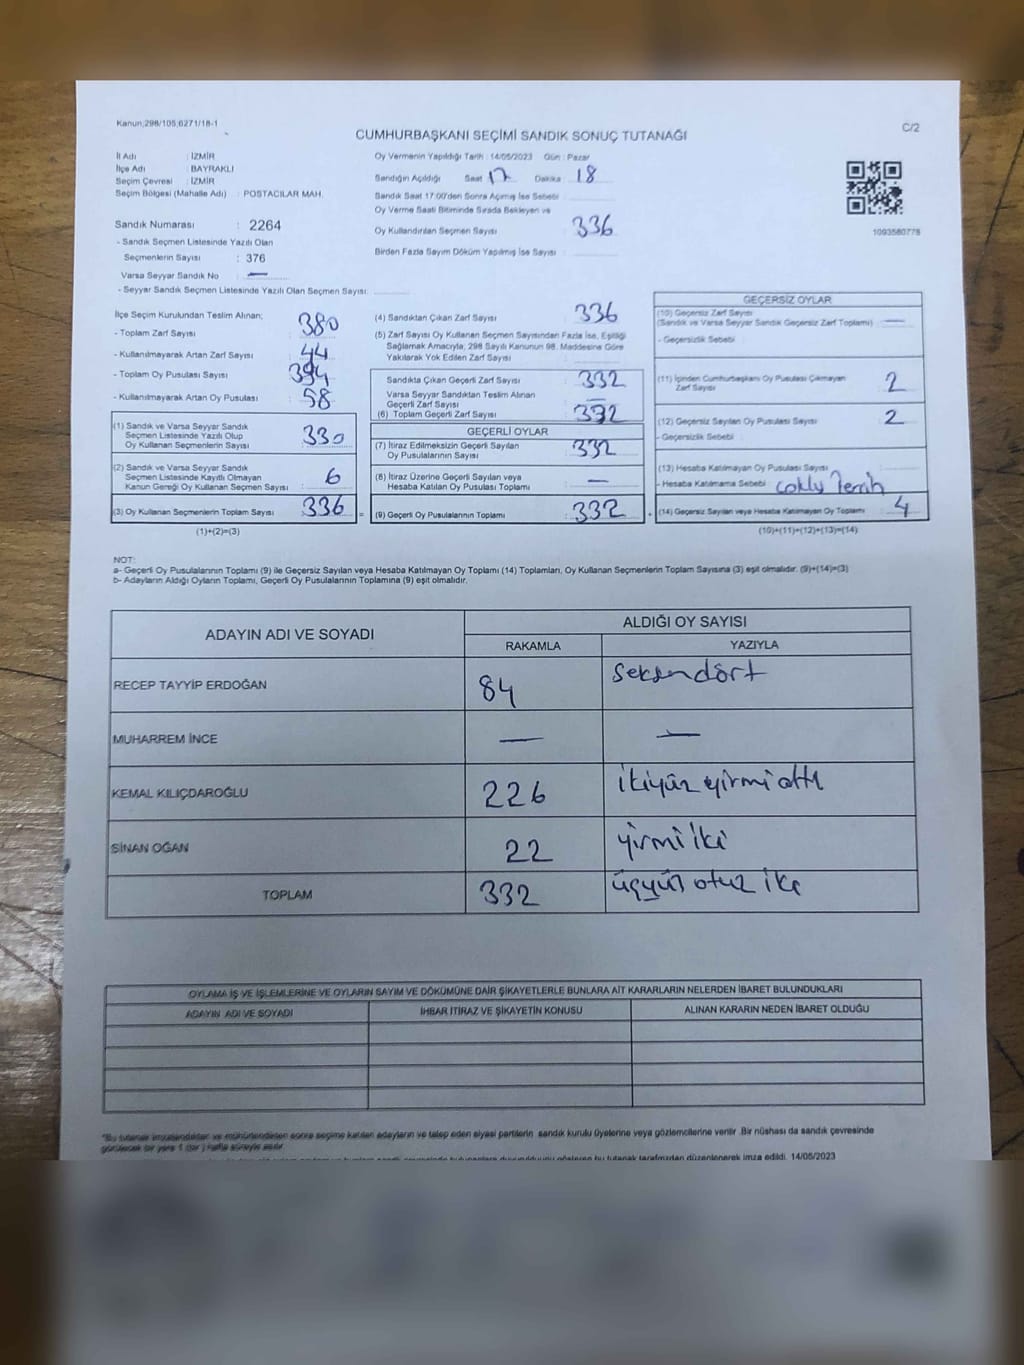 Kanun;298/105,6271/18-1
C/2
CUMHURBAŞKANI SEÇİMİ SANDIK SONUÇ TUTANAĞI
İl Adı : İZMİR
İlçe Adı : BAYRAKLI
Seçim Çevresi : İZMİR
Seçim Bölgesi (Mahalle Adı) : POSTACILAR MAH.
Oy Vermenin Yapıldığı Tarih : 14/05/2023 Gün : Pazar
Sandığın Açıldığı Saat 17 Dakika 18
Sandık Saat 17:00'den Sonra Açılmış İse Sebebi
Oy Verme Saati Bitiminde Sırada Bekleyen ve
Oy Kullandırılan Seçmen Sayısı : 336
Birden Fazla Sayım Döküm Yapılmış İse Sayısı :
1093580778
Sandık Numarası : 2264
- Sandık Seçmen Listesinde Yazılı Olan
Seçmenlerin Sayısı : 376
Varsa Seyyar Sandık No : —
- Seyyar Sandık Seçmen Listesinde Yazılı Olan Seçmen Sayısı:
İlçe Seçim Kurulundan Teslim Alınan;
- Toplam Zarf Sayısı : 380
- Kullanılmayarak Artan Zarf Sayısı : 44
- Toplam Oy Pusulası Sayısı : 394
- Kullanılmayarak Artan Oy Pusulası : 58
(1) Sandık ve Varsa Seyyar Sandık
Seçmen Listesinde Yazılı Olup
Oy Kullanan Seçmenlerin Sayısı : 330
(2) Sandık ve Varsa Seyyar Sandık
Seçmen Listesinde Kayıtlı Olmayan
Kanun Gereği Oy Kullanan Seçmen Sayısı : 6
(3) Oy Kullanan Seçmenlerin Toplam Sayısı : 336
(1)+(2)=(3)
(4) Sandıktan Çıkan Zarf Sayısı : 336
(5) Zarf Sayısı Oy Kullanan Seçmen Sayısından Fazla İse, Eşitliği
Sağlamak Amacıyla, 298 Sayılı Kanunun 98. Maddesine Göre
Yakılarak Yok Edilen Zarf Sayısı :
Sandıkta Çıkan Geçerli Zarf Sayısı : 332
Varsa Seyyar Sandıktan Teslim Alınan
Geçerli Zarf Sayısı : —
(6) Toplam Geçerli Zarf Sayısı : 332
GEÇERLİ OYLAR
(7) İtiraz Edilmeksizin Geçerli Sayılan
Oy Pusulalarının Sayısı : 332
(8) İtiraz Üzerine Geçerli Sayılan veya
Hesaba Katılan Oy Pusulası Toplamı : —
= (9) Geçerli Oy Pusulalarının Toplamı : 332
GEÇERSİZ OYLAR
(10) Geçersiz Zarf Sayısı
(Sandık ve Varsa Seyyar Sandık Geçersiz Zarf Toplamı) : —
- Geçersizlik Sebebi
(11) İçinden Cumhurbaşkanı Oy Pusulası Çıkmayan
Zarf Sayısı : 2
(12) Geçersiz Sayılan Oy Pusulası Sayısı : 2
- Geçersizlik Sebebi :
(13) Hesaba Katılmayan Oy Pusulası Sayısı :
- Hesaba Katılmama Sebebi :
+ (14) Geçersiz Sayılan veya Hesaba Katılmayan Oy Toplamı : 4
(10)+(11)+(12)+(13)=(14)
NOT:
a- Geçerli Oy Pusulalarının Toplamı (9) ile Geçersiz Sayılan veya Hesaba Katılmayan Oy Toplamı (14) Toplamları, Oy Kullanan Seçmenlerin Toplam Sayısına (3) eşit olmalıdır. (9)+(14)=(3)
b- Adayların Aldığı Oyların Toplamı, Geçerli Oy Pusulalarının Toplamına (9) eşit olmalıdır.
ADAYIN ADI VE SOYADI
ALDIĞI OY SAYISI
RAKAMLA YAZIYLA
RECEP TAYYİP ERDOĞAN 84 Seksendört
MUHARREM İNCE — —
KEMAL KILIÇDAROĞLU 226 ikiyüz yirmi altı
SİNAN OĞAN 22 yirmi iki
TOPLAM 332 üçyüz otuz iki
OYLAMA İŞ VE İŞLEMLERİNE VE OYLARIN SAYIM VE DÖKÜMÜNE DAİR ŞİKAYETLERLE BUNLARA AİT KARARLARIN NELERDEN İBARET BULUNDUKLARI
ADAYIN ADI VE SOYADI İHBAR İTİRAZ VE ŞİKAYETİN KONUSU ALINAN KARARIN NEDEN İBARET OLDUĞU
*Bu tutanak imzalandıktan ve mühürlendikten sonra seçime katılan adayların ve talep eden siyasi partilerin sandık kurulu üyelerine veya gözlemcilerine verilir .Bir nüshası da sandık çevresinde
görülecek bir yere 1 (bir) hafta süreyle asılır.
bu tutanak tarafımızdan düzenlenerek imza edildi. 14/05/2023